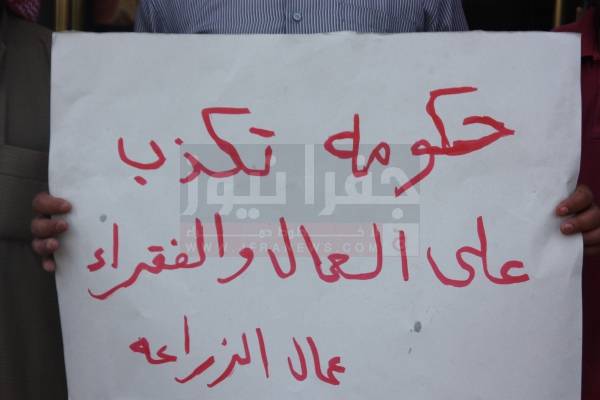 حكومه تكذب
على العمال والفقراء
عمال الزراعه
جفرا نيوز
WWW.JFRANEWS.COM